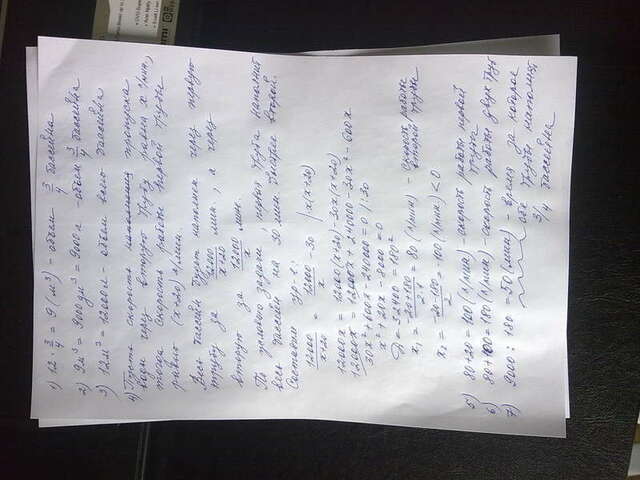 1) 12 · 3/4 = 9 (м³) - объем 3/4 бассейна
2) 9м³ = 9000 дм³ = 9000 л - объем 3/4 бассейна
3) 12м³ = 12000 л - объем всего бассейна
4) Пусть скорость пропуска
воды через вторую трубу равна х л/мин,
тогда скорость работы первой трубы
равна (х+20) л/мин.
Весь бассейн будет наполнен через первую
трубу за 12000/х+20 мин., а через
вторую за 12000/х мин.
По условию задачи, первая труба наполнит
весь бассейн на 30 мин быстрее второй.
Составим ур-е:
12000/х+20 = 12000/х - 30 | х(х+20)
12000х = 12000(х+20) - 30х(х+20)
12000х = 12000х + 240000 - 30х² - 600х
30х² + 600х - 240000 = 0 | :30
х² + 20х - 8000 = 0
D = 32400 = 180²
х₁ = -20+180/2 = 80 (л/мин) - скорость работы второй трубы
х₂ = -20-180/2 = 100 (л/мин) < 0
5) 80+20 = 100 (л/мин) - скорость работы первой трубы
6) 80+100 = 180 (л/мин) - скорость работы двух труб
7) 9000 : 180 = 50 (мин) - время за которое
обе трубы наполнят
3/4 бассейна